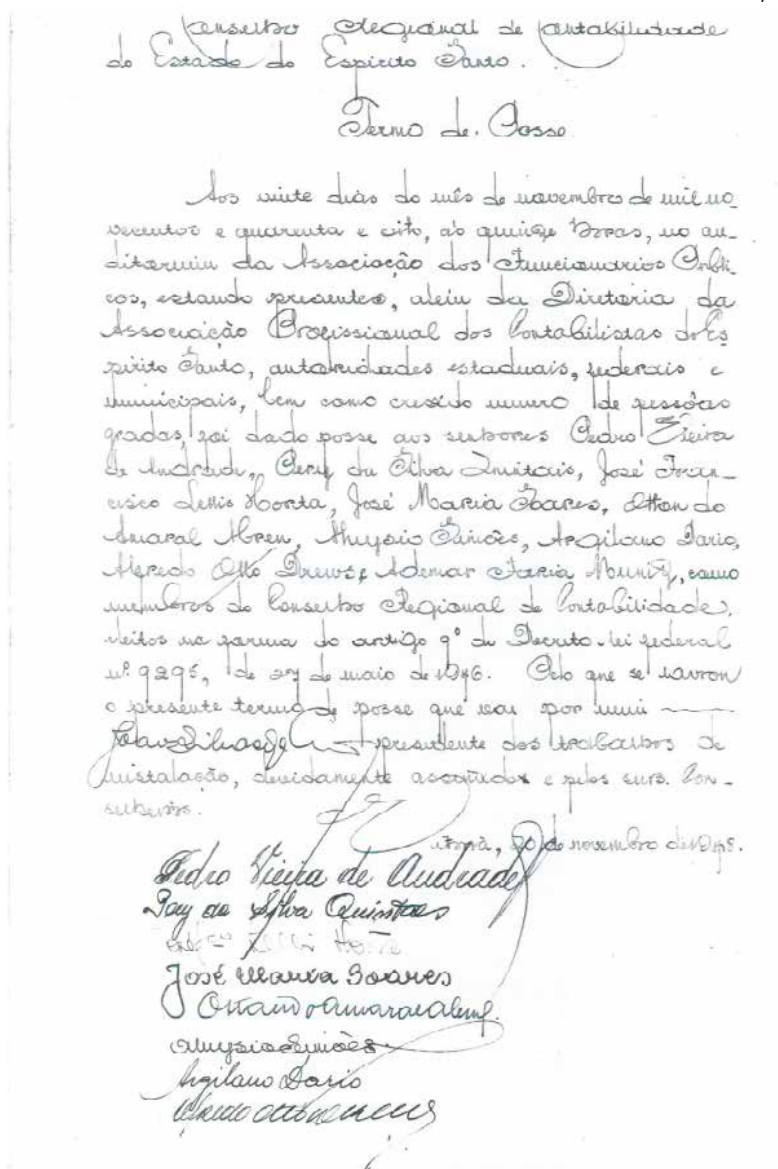 Conselho Regional de Contabilidade
do Estado do Espirito Santo.
Termo de Posse
Aos vinte dias do mês de novembro de mil no-
vecentos e quarenta e oito, às quinze horas, no au-
ditorium da Associação dos Funcionarios Públi-
cos, estando presentes, alem da Diretoria da
Associação Profissional dos Contabilistas do Es
pirito Santo, autoridades estaduais, federais e
municipais, bem como crescido numero de pessôas
gradas, foi dado posse aos senhores Pedro Vieira
de Andrade, da Silva Quintais, José Fran-
cisco Horta, José Maria Soares, Otton do
Amaral Abreu, Aluysio Simões, Argilano Dario,
Alfredo Otto Drews e Ademar Faria Muniz, como
membros do Conselho Regional de Contabilidade,
eleitos na forma do artigo 9º do Decreto-lei federal
nº 9295, de 27 de maio de 1946. Pelo que se lavrou
o presente termo de posse que vai por mim
presidente dos trabalhos de
instalação, devidamente assinados e pelos snrs. Con-
selheiros.
Vitória, 20 de novembro de 1948.
Pedro Vieira de Andrade
da Silva Quintaes
José Maria Soares
Otton do Amaral Abreu
Aluysio Simões
Argilano Dario
Alfredo Otto Drews